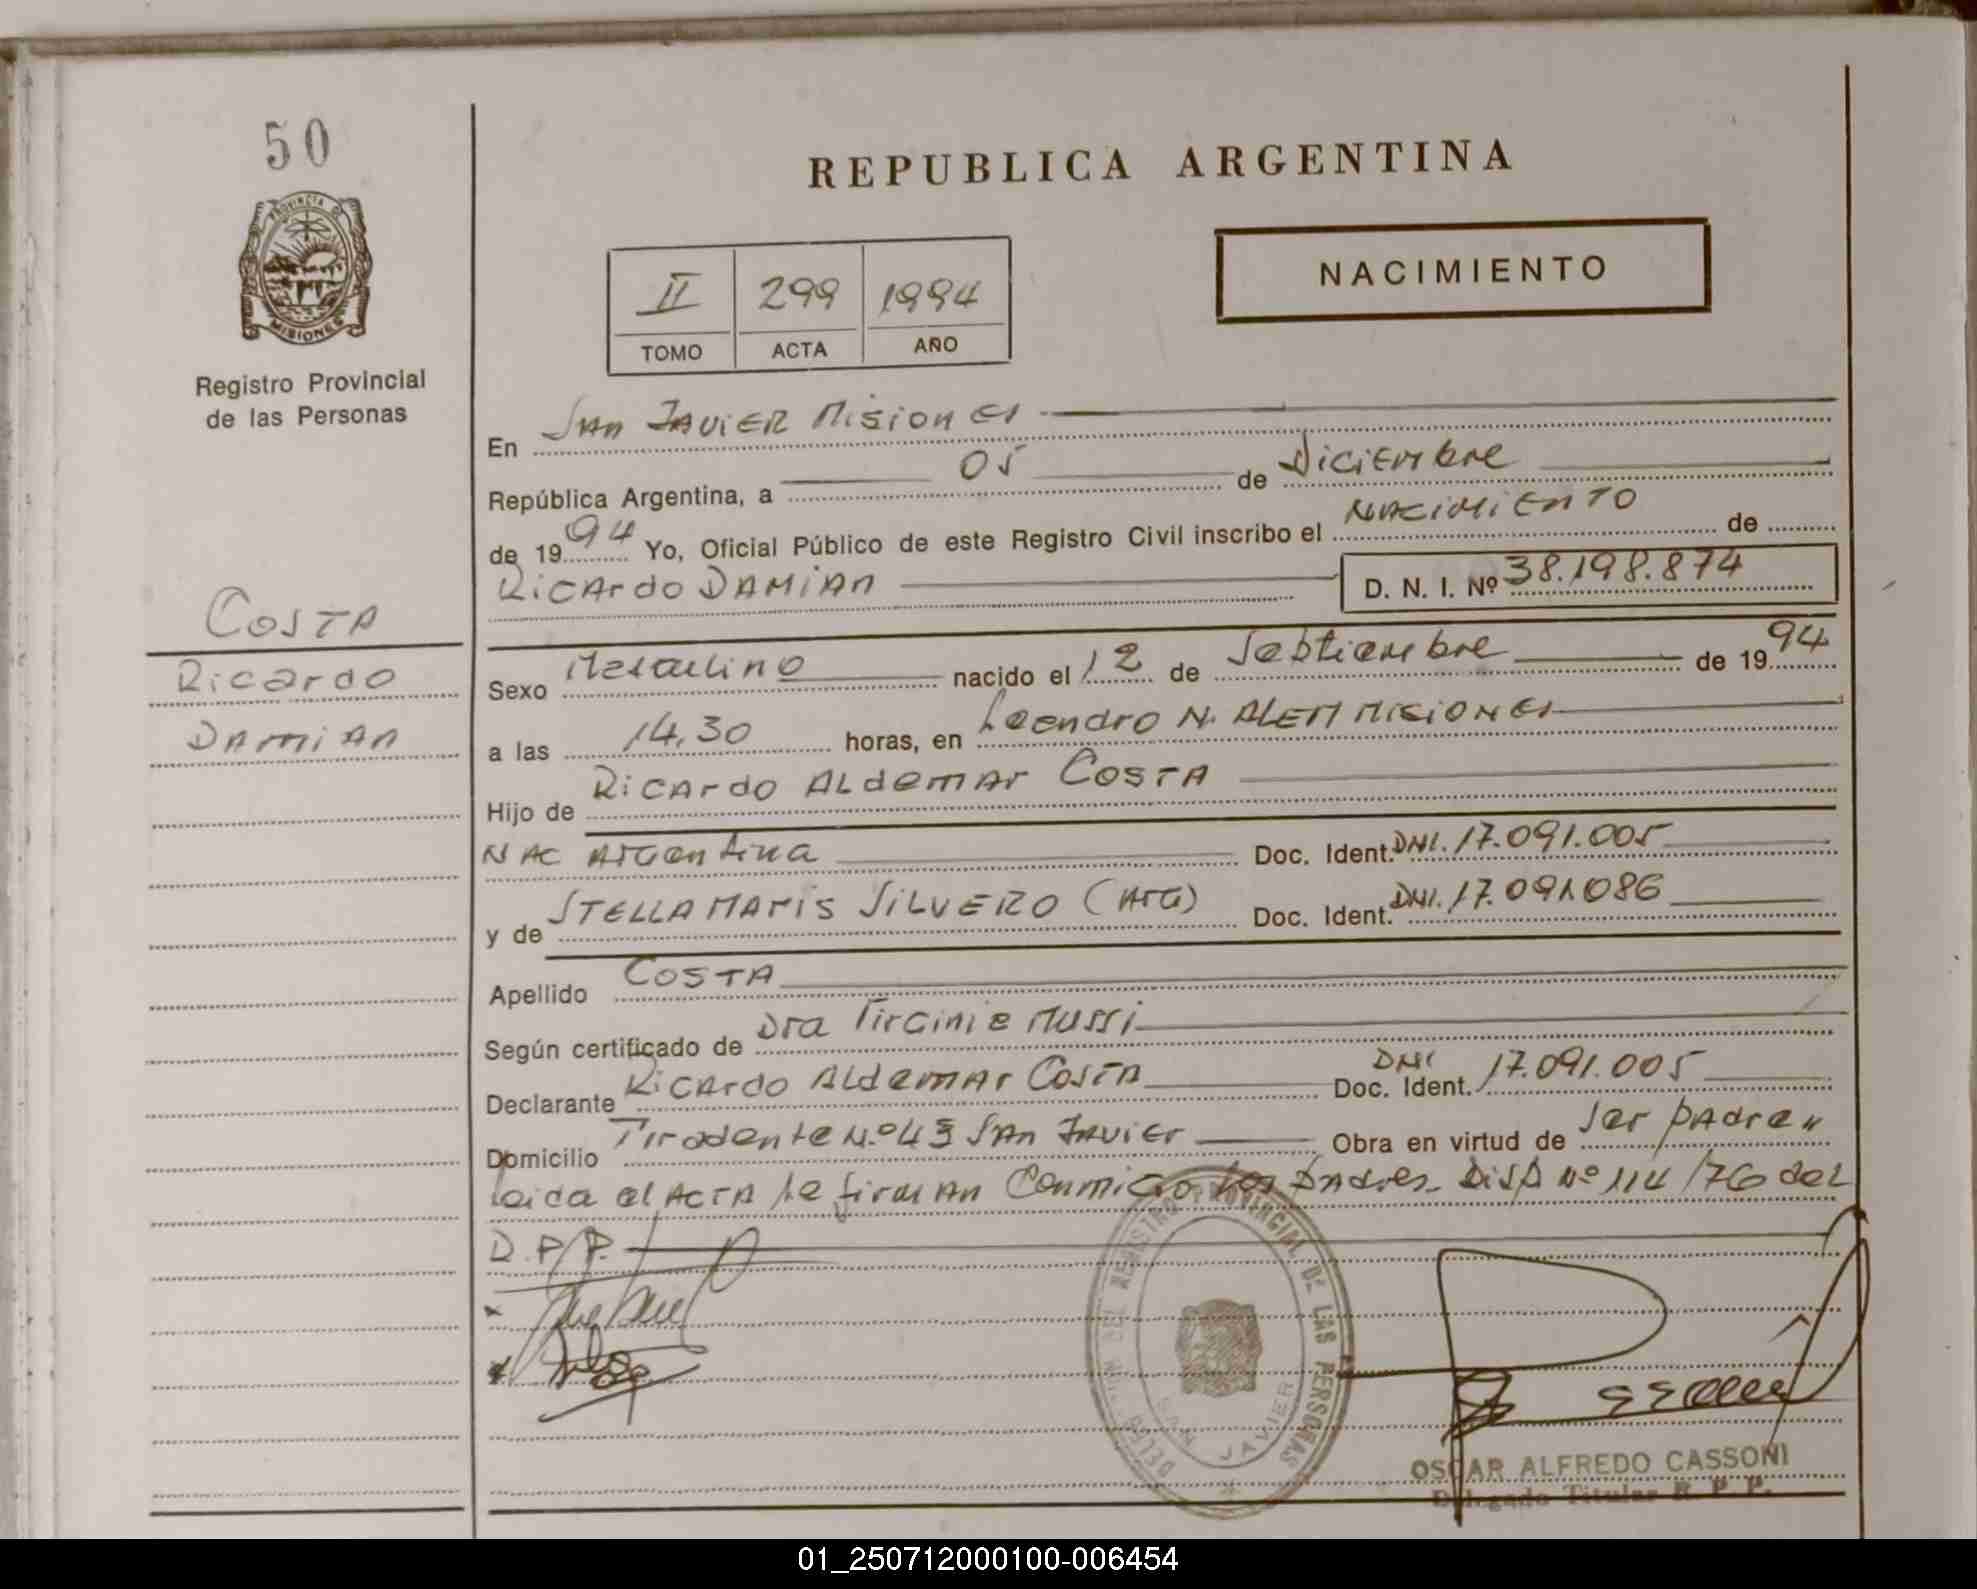 50
PROVINCIA DE
MISIONES
Registro Provincial
de las Personas
COSTA
Ricardo
DAMIAN
REPUBLICA ARGENTINA
NACIMIENTO
II 299 1994
TOMO ACTA AÑO
En SAN JAVIER MISIONES
República Argentina, a 05 de Diciembre
de 1994 Yo, Oficial Público de este Registro Civil inscribo el NACIMIENTO de
RICARDO DAMIAN D. N. I. Nº 38.198.874
Sexo Masculino nacido el 12 de Septiembre de 1994
a las 14,30 horas, en Leandro N. ALEM MISIONES
Hijo de RICARDO ALDEMAR COSTA
NAC ARGentina Doc. Ident. DNI. 17.091.005
y de STELLA MARIS SILVERO (ARG) Doc. Ident. DNI. 17.091.086
Apellido COSTA
Según certificado de Dra Virginie Mussi
Declarante RICARDO ALDEMAR COSTA Doc. Ident. DNI 17.091.005
Domicilio Tiradente N.º 43 SAN JAVIER Obra en virtud de ser padre
Leida el ACTA la firman Conmigo los padres. Disp Nº 114/76 del
D.P.P.
DELEGACION DEL REGISTRO PROVINCIAL DE LAS PERSONAS
SAN JAVIER
OSCAR ALFREDO CASSONI
Delegado Titular R. P. P.
01_250712000100-006454